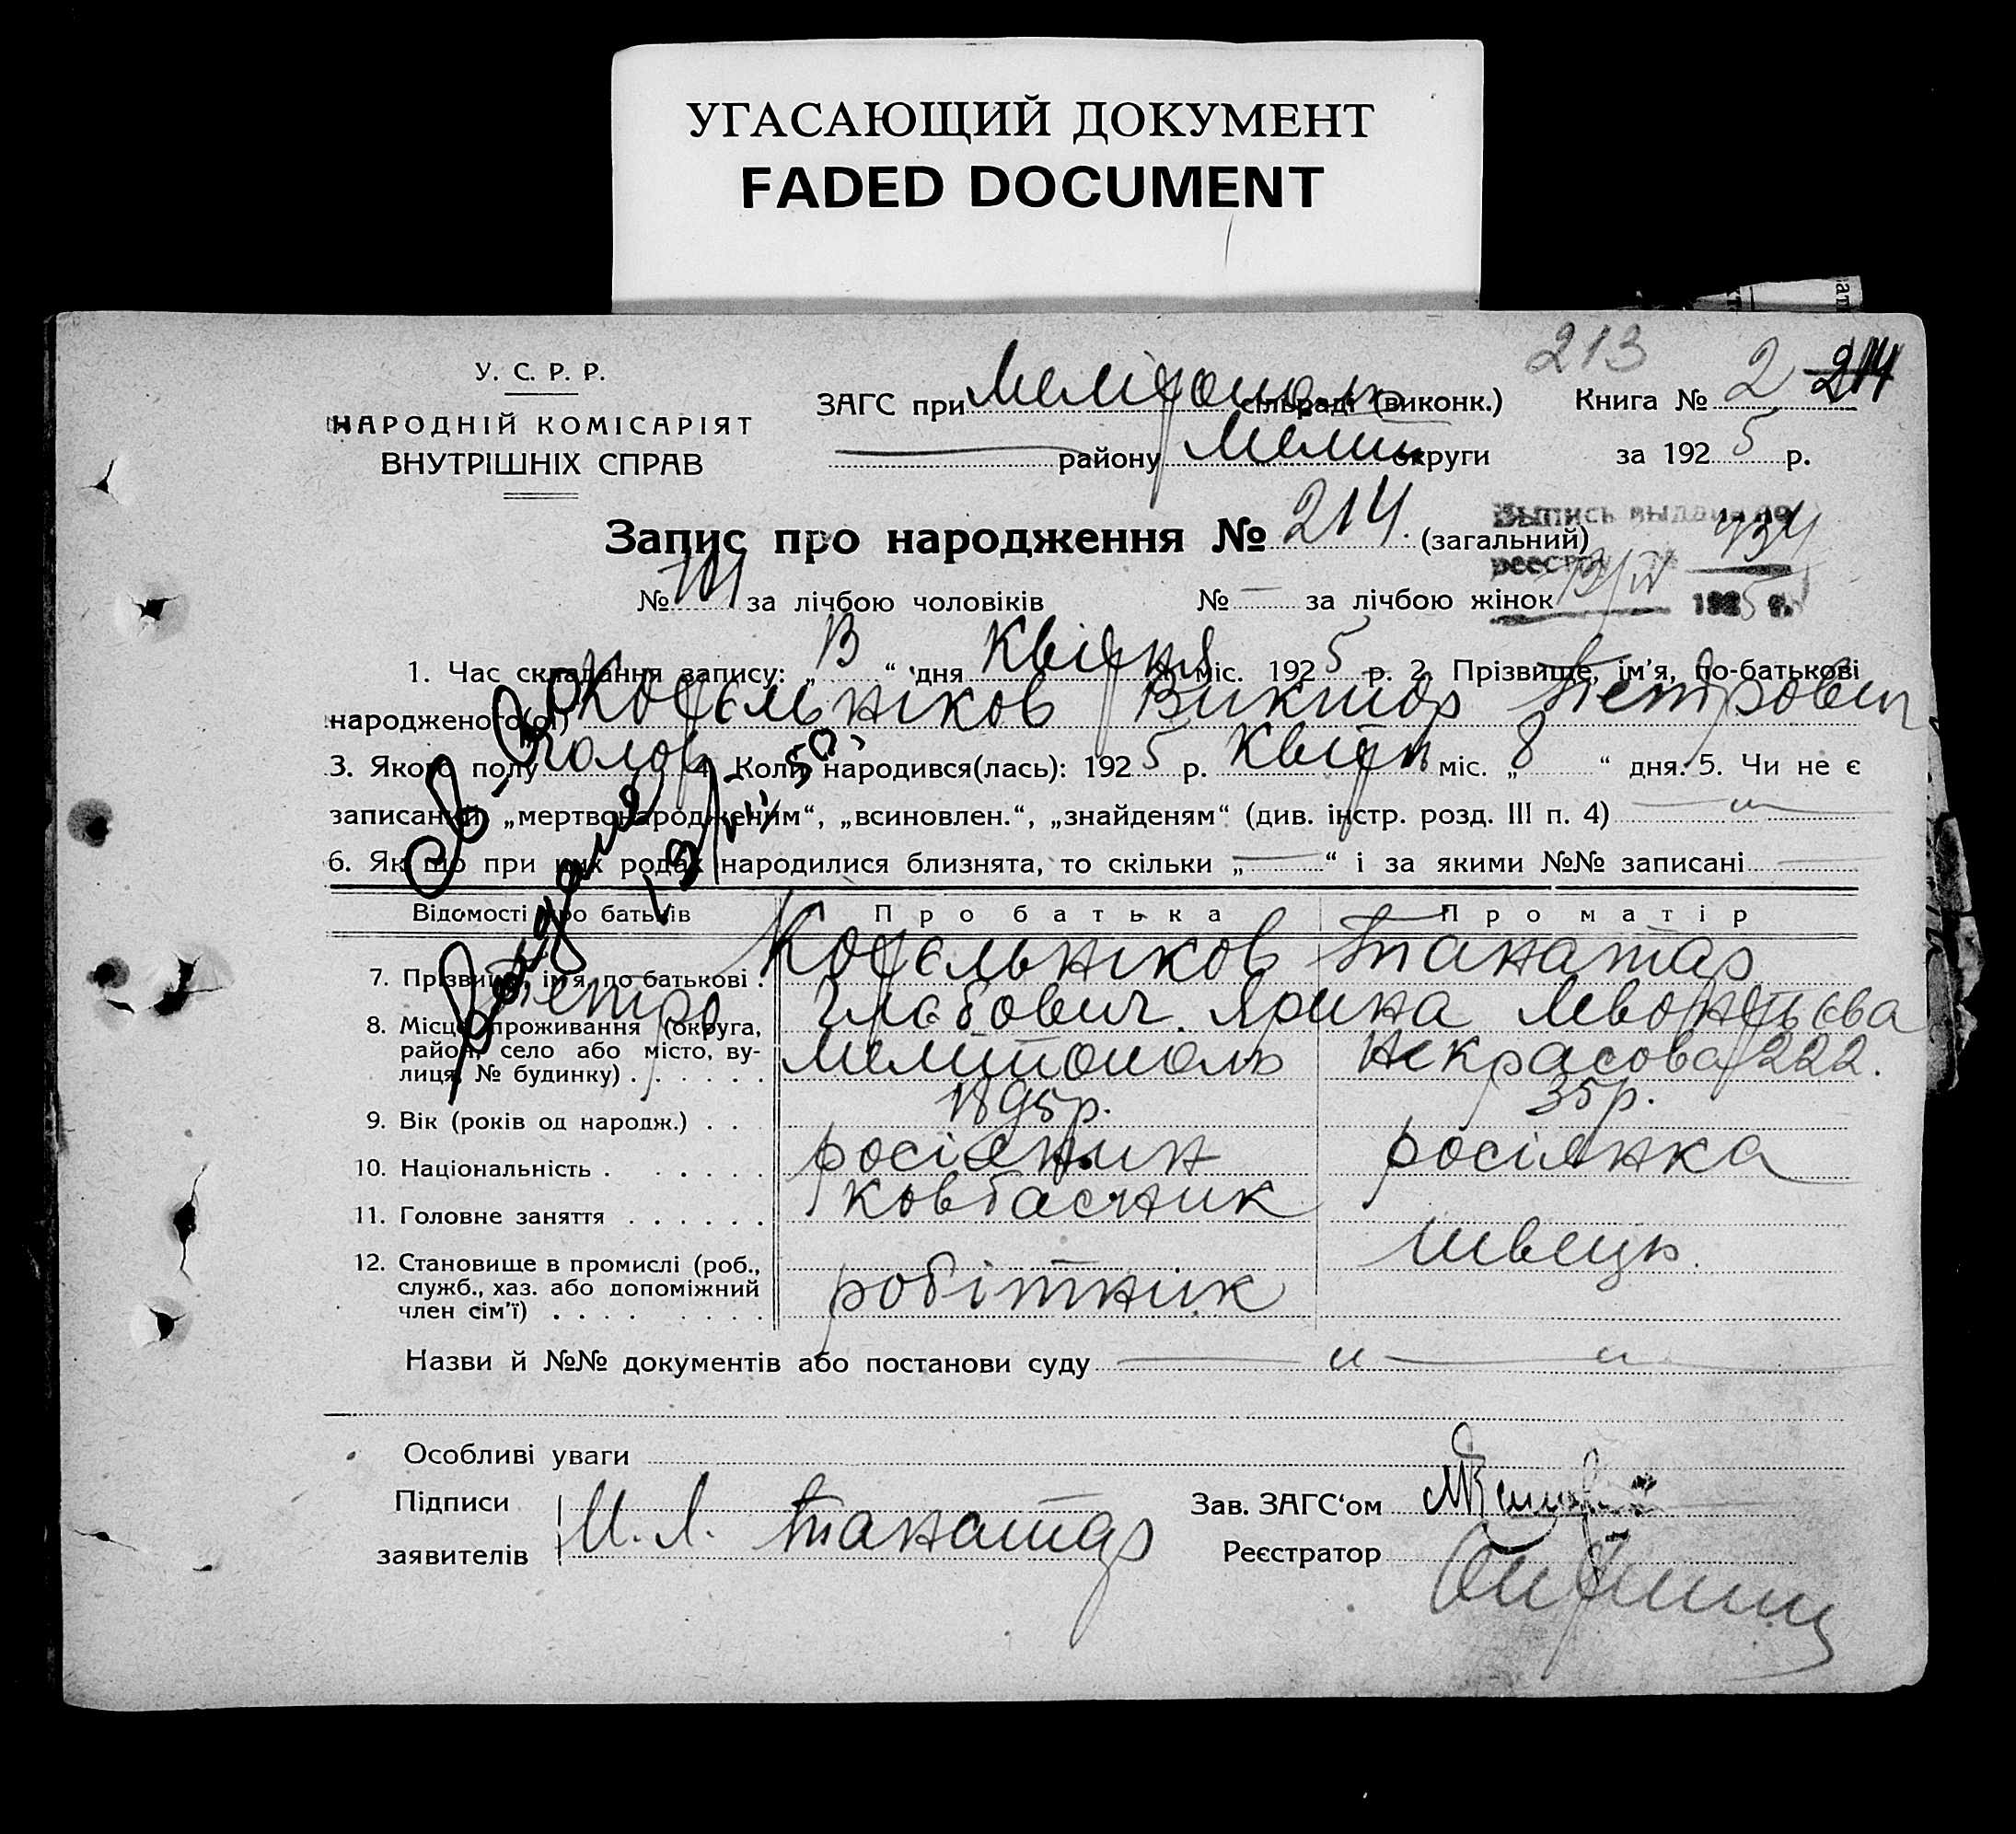 УГАСАЮЩИЙ ДОКУМЕНТ
FADED DOCUMENT
213
У. С. Р. Р.
НАРОДНІЙ КОМІСАРІЯТ
ВНУТРІШНІХ СПРАВ
ЗАГС при Мелітополь сільраді (виконк.)
Книга № 2 214
району Мелит округи
за 1925 р.
Запис про народження № 214. (загальний)
Выпись выдана по
реестру № 434
13/IV 1925 г.
№ 101 за лічбою чоловіків № — за лічбою жінок
1. Час складання запису: „13“ дня Квітня міс. 1925 р. 2. Прізвище, ім'я, по-батькові
народженого(ої) Котєльніков Виктор Петрович
3. Якого полу чолов 4. Коли народився(лась): 1925 р. Квітн міс. „8“ дня. 5. Чи не є
записаний „мертвонародженим“, „всиновлен.“, „знайденям“ (див. інстр. розд. III п. 4) — „ —
6. Як що при цих родах народилися близнята, то скільки „—“ і за якими №№ записані —
Св-во
выдано
Відомості про батьків
Про батька
Про матір
7. Прізвище, ім'я, по батькові . Котєльніков Танатар
Петро Глєбович Ярина Лєвонтьєва
8. Місце проживання (округа,
район, село або місто, ву-
лиця, № будинку) . . . . . . Мелитополь Некрасова 222.
9. Вік (років од народж.) . . 1895р. 35р.
10. Національність . . . . . росіянин росіянка
11. Головне заняття . . . . . . ковбасник швець.
12. Становище в промислі (роб.,
служб., хаз. або допоміжний
член сім'ї) . . . . . . . . робітник
Назви й №№ документів або постанови суду — „ — „ —
Особливі уваги
Підписи
заявителів
И. Л. Танатар
Зав. ЗАГС'ом
Реєстратор